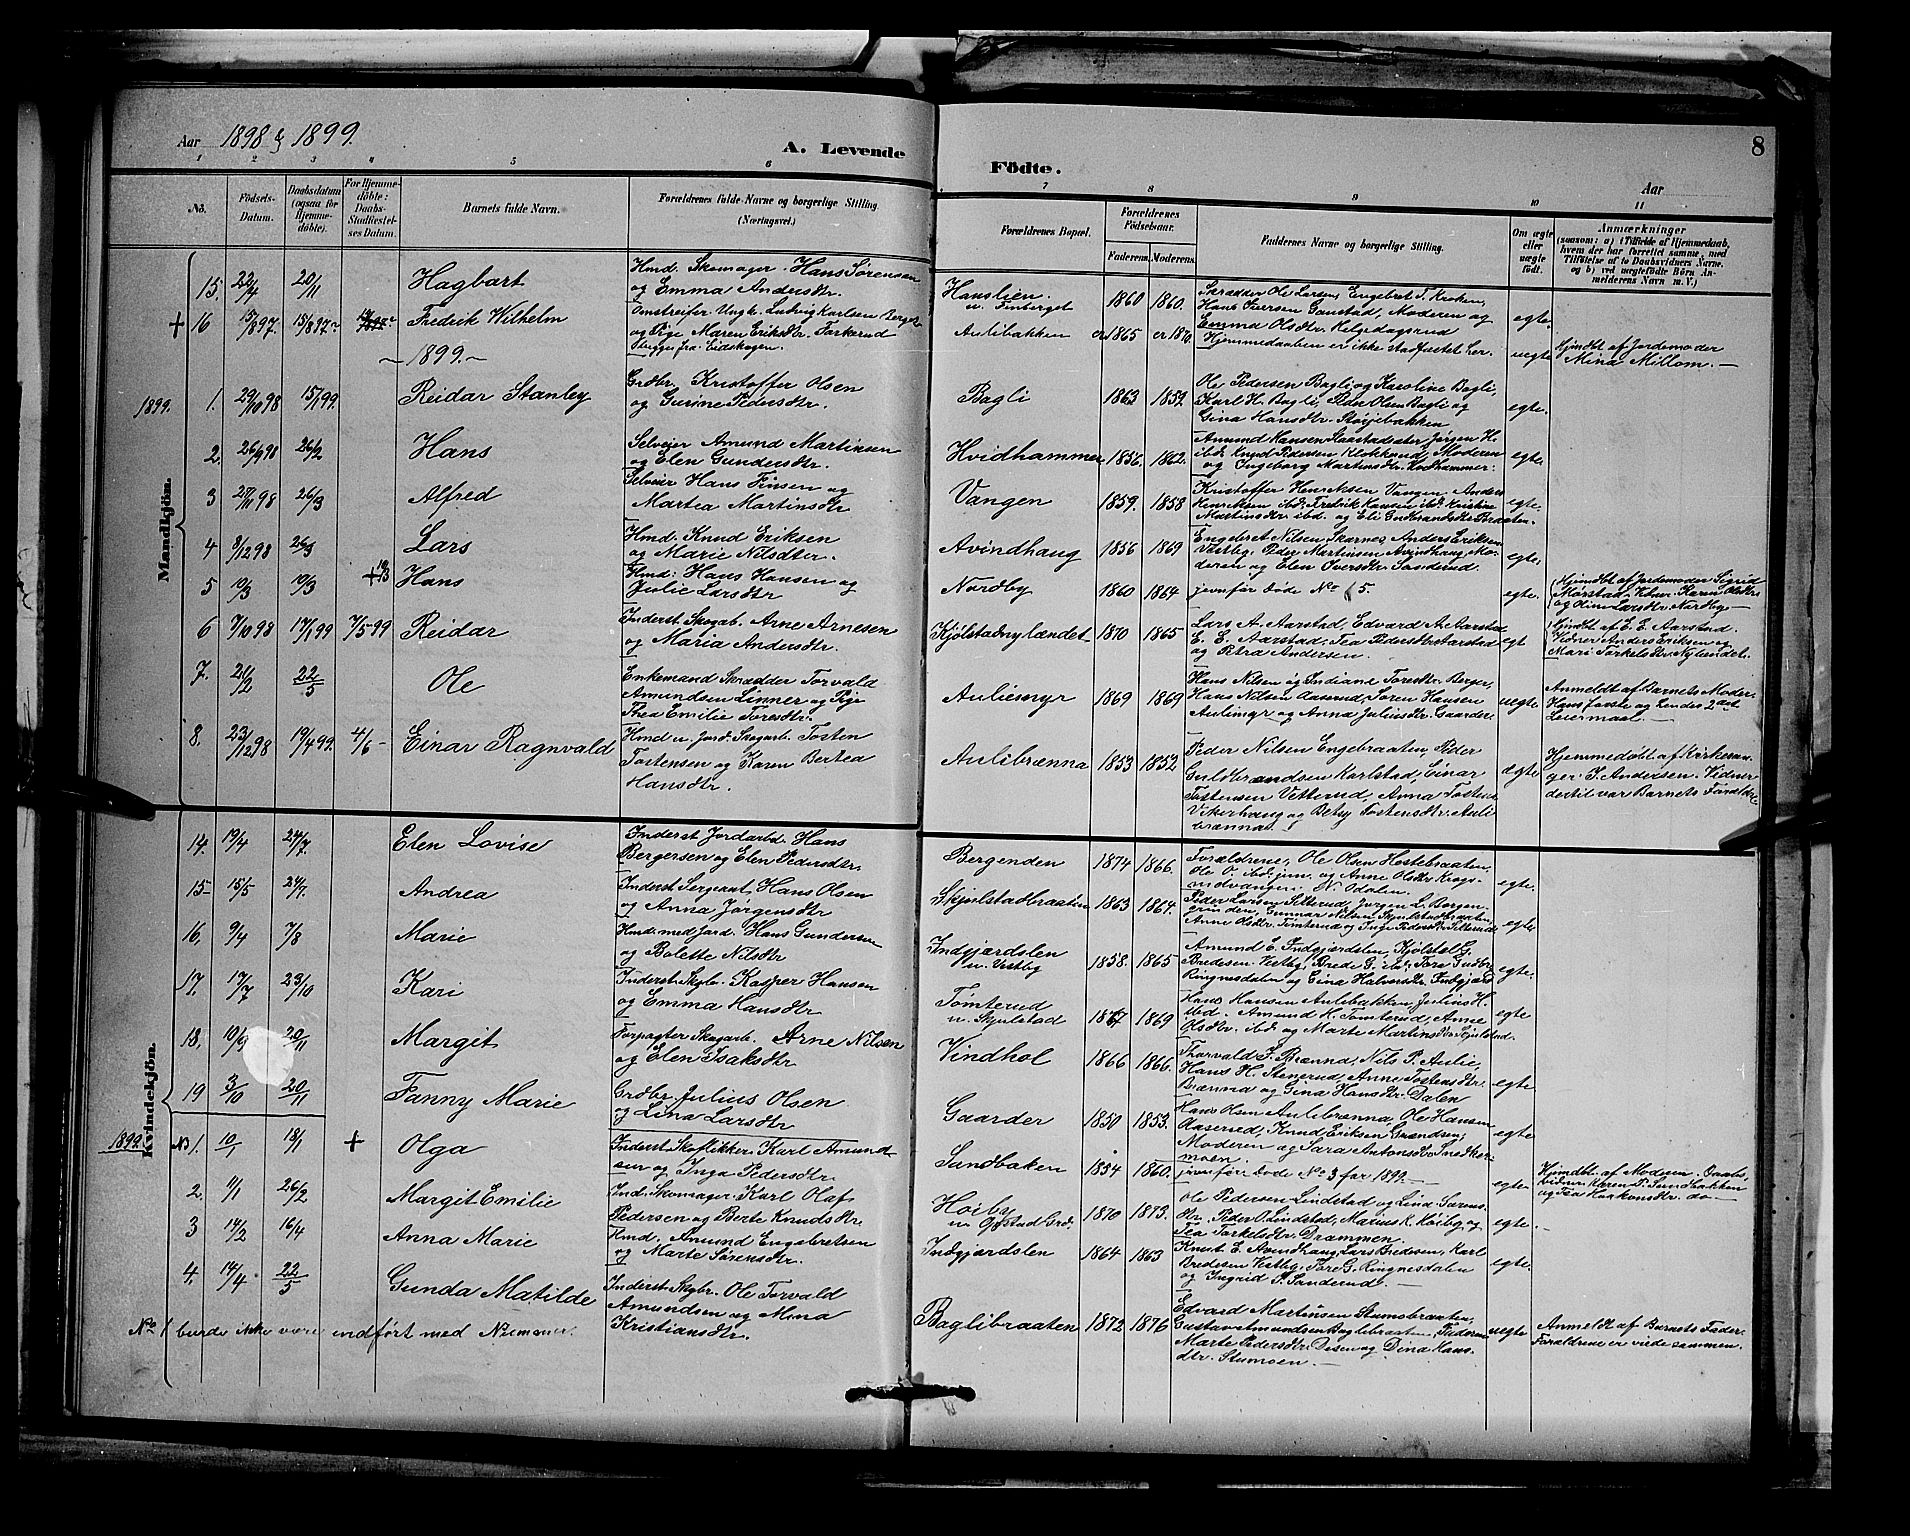 Aar 1898 & 1899.
A. Levende Födte.
8
Aar
1 2 3 4 5 6 7 8 9 10 11
No.
Födsels-Datum.
Daabsdatum (ogsaa for Hjemme-döbte).
For Hjemme-döbte: Daabs-Stadfæstel-ses Datum.
Barnets fulde Navn.
Forældrenes fulde Navne og borgerlige Stilling. (Næringsvei.)
Forældrenes Bopæl.
Forældrenes Födselsaar.
Faderens. Moderens.
Faddernes Navne og borgerlige Stilling.
Om ægte eller uægte födt.
Anmærkninger
(saasom: a) i Tilfælde af Hjemmedaab, hvem der har forrettet samme, med Tilföielse af to Daabsvidners Navne. og b) ved uægtefödte Börn Anmelderens Navn m. V.)
Mandkjön.
15. 22/4 20/11 Hagbart
Hmd. Skomager Hans Sørensen
og Emma Andersdtr.
Hanslien u. Finberget 1860 1860.
Skrædder Ole Larsen, Engebret T. Kroken,
Hans Iversen Gaustad, Moderen og
Emma Olsdtr. Helgedagsrud
egte.
+ 16 15/897 15/897 Fredrik Wilhelm
Omstreifer Ungk. Ludvig Karlsen Berget
og Pige Maren Eriksdtr. Torkerud
Skugge fra Eidskogen.
Aulibakken 1865
Hjemmedaaben er ikke stadfæstet her.
uegte
Hjmdbt af Jordemoder
Mina Millom.
~ 1899. ~
1899. 1. 29/10 98 15/1 99. Reidar Stanley
Grdbr. Kristoffer Olsen
og Gurine Pedersdtr.
Bagli 1863 1859.
Ole Pedersen Bagli og Karoline Bagli,
Karl H. Bagli, Peder Olsen Bagli og
Gina Hansdtr. Støjebakken
egte.
2. 26/9 98 26/2 Hans
Selveier Amund Martinsen
og Elen Gundersdtr.
Hvidhammer 1856. 1862.
Amund Hansen Jørgen H.
ibd. Knud Pedersen Klokkerud, Moderen
og Ingeborg Martinsdtr. Hvdhammer.
egte
3 98 26/3 Alfred
Selveier Hans Finsen og
Martea Martinsdtr
Vangen 1859. 1858
Kristoffer Henriksen Vangen, Anders
Henriksen ibd. Fredrik Hansen ibd. Kristine
Martinsdtr. ibd. og Eli Gudbrandsdtr. Braaten.
egte.
4 8/12 98 26/3 Lars
Hmd. Knud Eriksen
og Marie Nilsdtr.
Avindhaug 1856 1869
Engebret Nilsen Skarnes, Anders Eriksen
Vestbg. Peder Martinsen Avindhaug, Mo-
deren og Elen Oversdtr. Sanderud.
egte.
5 10/3 10/3 + Hans
Hmd. Hans Hansen og
Julie Larsdtr
Nordby 1860 1864
jevnfør døde No 5.
egte.
Hjmdbt af Jordemoder Sigrid
Morstad, Vidner: Karen Olsdtr.
og Oline Larsdtr. Nordby.
6 7/10 98 17/1 99 7/5 99 Reidar
Inderst Skogab. Arne Arnesen
og Maria Andersdtr.
Kjølstadnylændet 1870 1865
Lars A. Aarstad, Edvard A. Aarstad
E. E. Aarstad, Tea Pedersdtr. Aarstad
og Petra Andersen.
egt
Hjmdbt af E. E. Aarstad.
Vidner Anders Eriksen og
Mari Torkelsdtr. Nylendet.
7. 21/2 22/5 Ole
Enkemand Skrædder Torvald
Amundsen Linner og Pige
Thea Emilie Toresdtr.
Auliemyr 1869 1869
Hans Nilsen og Indiane Toresdtr. Berger,
Hans Nilsen Aaserud, Søren Hansen
Aulimyr og Anna Juliusdtr. Gaarder.
uegte
Anmeldt af Barnets Moder.
Hans første og hendes 2det
Leiermaal.
8. 23/12 98 19/4 99. 4/6 Einar Ragnvald
Hmd u. Jord. Skogarb. Tosten
Tostensen og Karen Bertea
Hansdtr.
Aulibrænna 1853 1852
Peder Nilsen Engebraaten, Peder
Guldbrandsen Karlstad, Einar
Tostensen Vetterud, Anna Tostensd.
Vikerhaug og Betsy Tostensdtr. Auli
brænna.
ægte
Hjemmedøbt af Kirkesan-
ger J. Andersen. Vidner
dertil var Barnets Forældre.
Kvindekjön.
14. 19/4 24/7. Elen Lovise
Inderst Jordarbd. Hans
Bergersen og Elen Pedersdtr.
Bergenden 1874 1866.
Forældrene, Ole Olsen Hestebraaten,
Ole O. ibd. jun. og Anne Olsdtr. Krogs-
mdvangen. N. Odalen.
egte.
15 15/5 24/7. Andrea
Inderst Sergeant Hans Olsen
og Anna Jørgensdtr
Skjulstadbraaten 1863 1864.
Peder Larsen Sitterud, Jørgen L. Bergen-
den, Gunnar Nilsen Skjulstadbraaten,
Anne Olsdtr. Tomterud og Inge Pedersdtr. Sitterud
egte.
16. 9/4 7/8 Marie
Hmd. med Jord. Hans Gundersen
og Bolette Nilsdtr
Indgjærdslen u. Vestbg 1858. 1865
Amund E. Indgjærdslen, Kjølstel G.
Bredesen Vestbg, Brede G. ibd. Tore Gudbr.
Ringnesdalen og Eina Halvorsdtr. Indgjærds
egte.
17. 17/7 23/10 Kari
Inderst Skgb. Kasper Hansen
og Emma Hansdtr
Tømterud u. Skjulstad 1867 1869
Hans Hansen Aulibakken, Julius H.
ibd. Amund H. Tomterud, Anne
Olsdtr. ibd og Marte Martinsdtr. Skjulstad.
egte
18. 10/9 20/11 Margit
Forpagter Skogarb. Arne Nilsen
og Elen Isaksdtr
Vindhol 1866 1866.
Thorvald J. Brænna, Nils P. Aulie,
Hans H. Stenerud, Anne Tostensdtr.
Brænna og Gina Hansdtr. Dalen
egte
19 3/10 20/11 Fanny Marie
Grdbr. Julius Olsen
og Lina Larsdtr
Gaarder 1850 1853.
Hans Olsen Aulibrænna, Ole Hansen
Aaserud, Knud Eriksen Grændsen,
Moderen og Sara Antonsdtr. Snedker-
moen.
egte
1899. No 1. 10/1 18/1 + Olga
Inderst Skoflikker Karl Amund
sen og Inga Pedersdtr.
Sundbaken 1854 1860.
jevnfør døde No 3 for 1899.
egte
Hjmdbt. af Modren.
Vidner Karen P. Sundbakken
og Tea Haakonsdtr. do
2. 11/1 26/2 Margit Emilie
Ind. Skomager Karl Olaf
Pedersen og Berte Knudsdtr.
Høiby u. Opstad Grd. 1870 1873.
Ole Pedersen Lindstad og Lina Sørens-
dtr. Peder O. Lindstad, Marius K. Høiby og
Tea Torkelsdtr. Drammen.
egte.
3 14/2 16/4 Anna Marie
Hmd. Amund Engebretsen
og Marte Sørensdtr.
Indgjærdslen 1864 1863
Knut E. Avindhaug, Lars Bredesen, Karl
Bredesen Vestbg. Tore G. Ringnesdalen
og Ingrid P. Sanderud.
egte.
4. 14/4 22/5 Gunda Matilde
Inderst Skgbr. Ole Torvald
Amundsen og Mina
Kristiansdtr.
Baglibraaten 1872 1876
Edvard Martinsen Stumobraaten,
Gustav Amundsen Baglibraaten, Faderen
Marte Pedersdtr. Disen og Dina Hans
dtr. Stumoen.
uegte
Anmeldt af Barnets Fader.
Forældrene er viede sammen.
No 1 burde ikke være indført med Nummer.